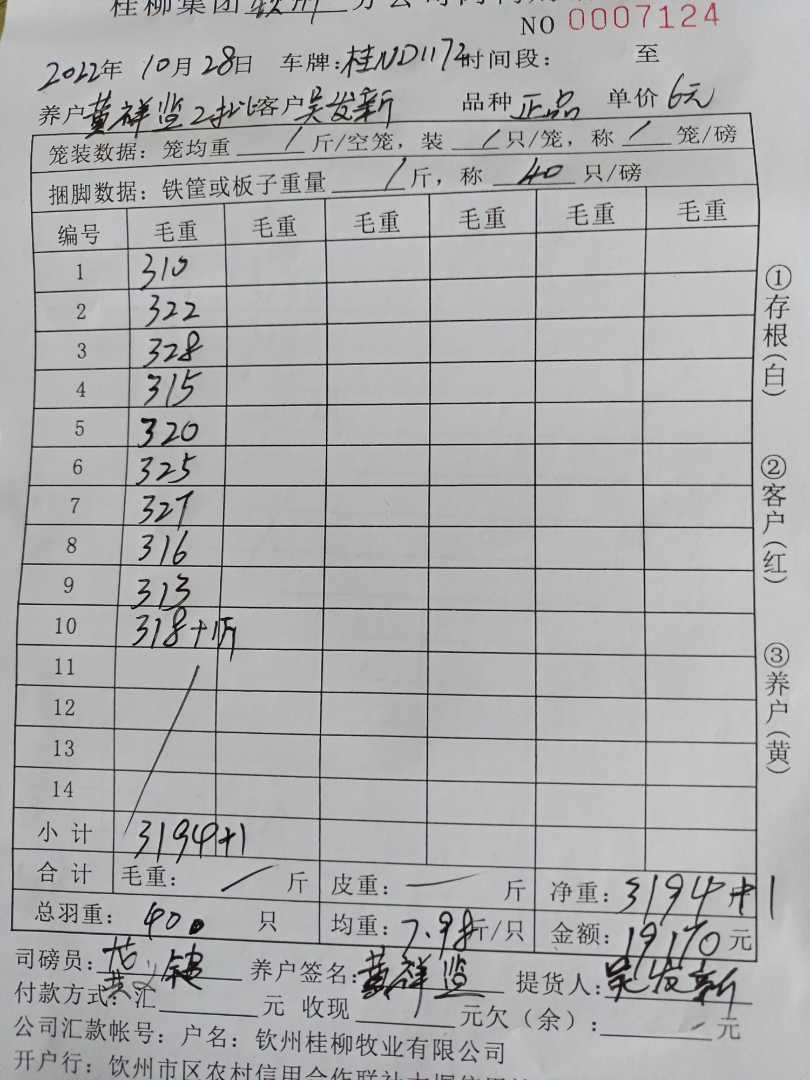 桂柳集团 钦州 分公司
NO 0007124
2022年 10月28日 车牌:桂ND1172 时间段: 至
养户 黄祥监2批 客户 吴发新 品种 正品 单价 6元
笼装数据:笼均重 / 斤/空笼,装 / 只/笼,称 / 笼/磅
捆脚数据:铁筐或板子重量 / 斤,称 40 只/磅
编号 毛重 毛重 毛重 毛重 毛重 毛重
1 310
2 322
3 328
4 315
5 320
6 325
7 327
8 316
9 313
10 318+1斤
11
12
13
14
小计 3194+1
合计 毛重: / 斤 皮重: 一 斤 净重:3194+1
总羽重: 400 只 均重:7.98斤/只 金额:19170元
司磅员: 养户签名:黄祥监 提货人:吴发新
付款方式:汇 元 收现 元欠(余): 元
公司汇款帐号:户名:钦州桂柳牧业有限公司
开户行:钦州市区农村信用合作联社
①存根(白)
②客户(红)
③养户(黄)